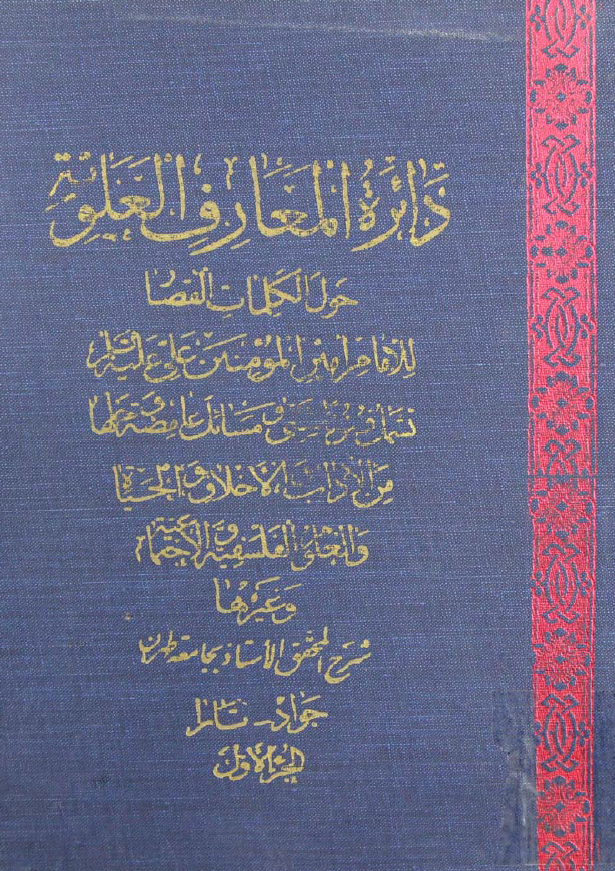 دَائِرَةُ المَعَارِفِ العَلَوِيَّةِ
حَولَ الكَلِمَاتِ القِصَارِ
لِلإمَامِ أمِيرِ المُؤمِنِينَ عَلِيٍّ عَلَيهِ السَّلَام
مَسَائِلَ غَامِضَةٍ
مِنَ الآدَابِ وَالأَخلَاقِ وَالحَيَاةِ
وَالعِلمِيَّةِ وَالفَلسَفِيَّةِ وَالاِجتِمَاعِيَّةِ
وَغَيرِهَا
شَرح المُحَقِّق الأُستَاذ بِجَامِعَة طَهرَان
جَوَاد تَارَا
الجُزءُ الأَوَّل